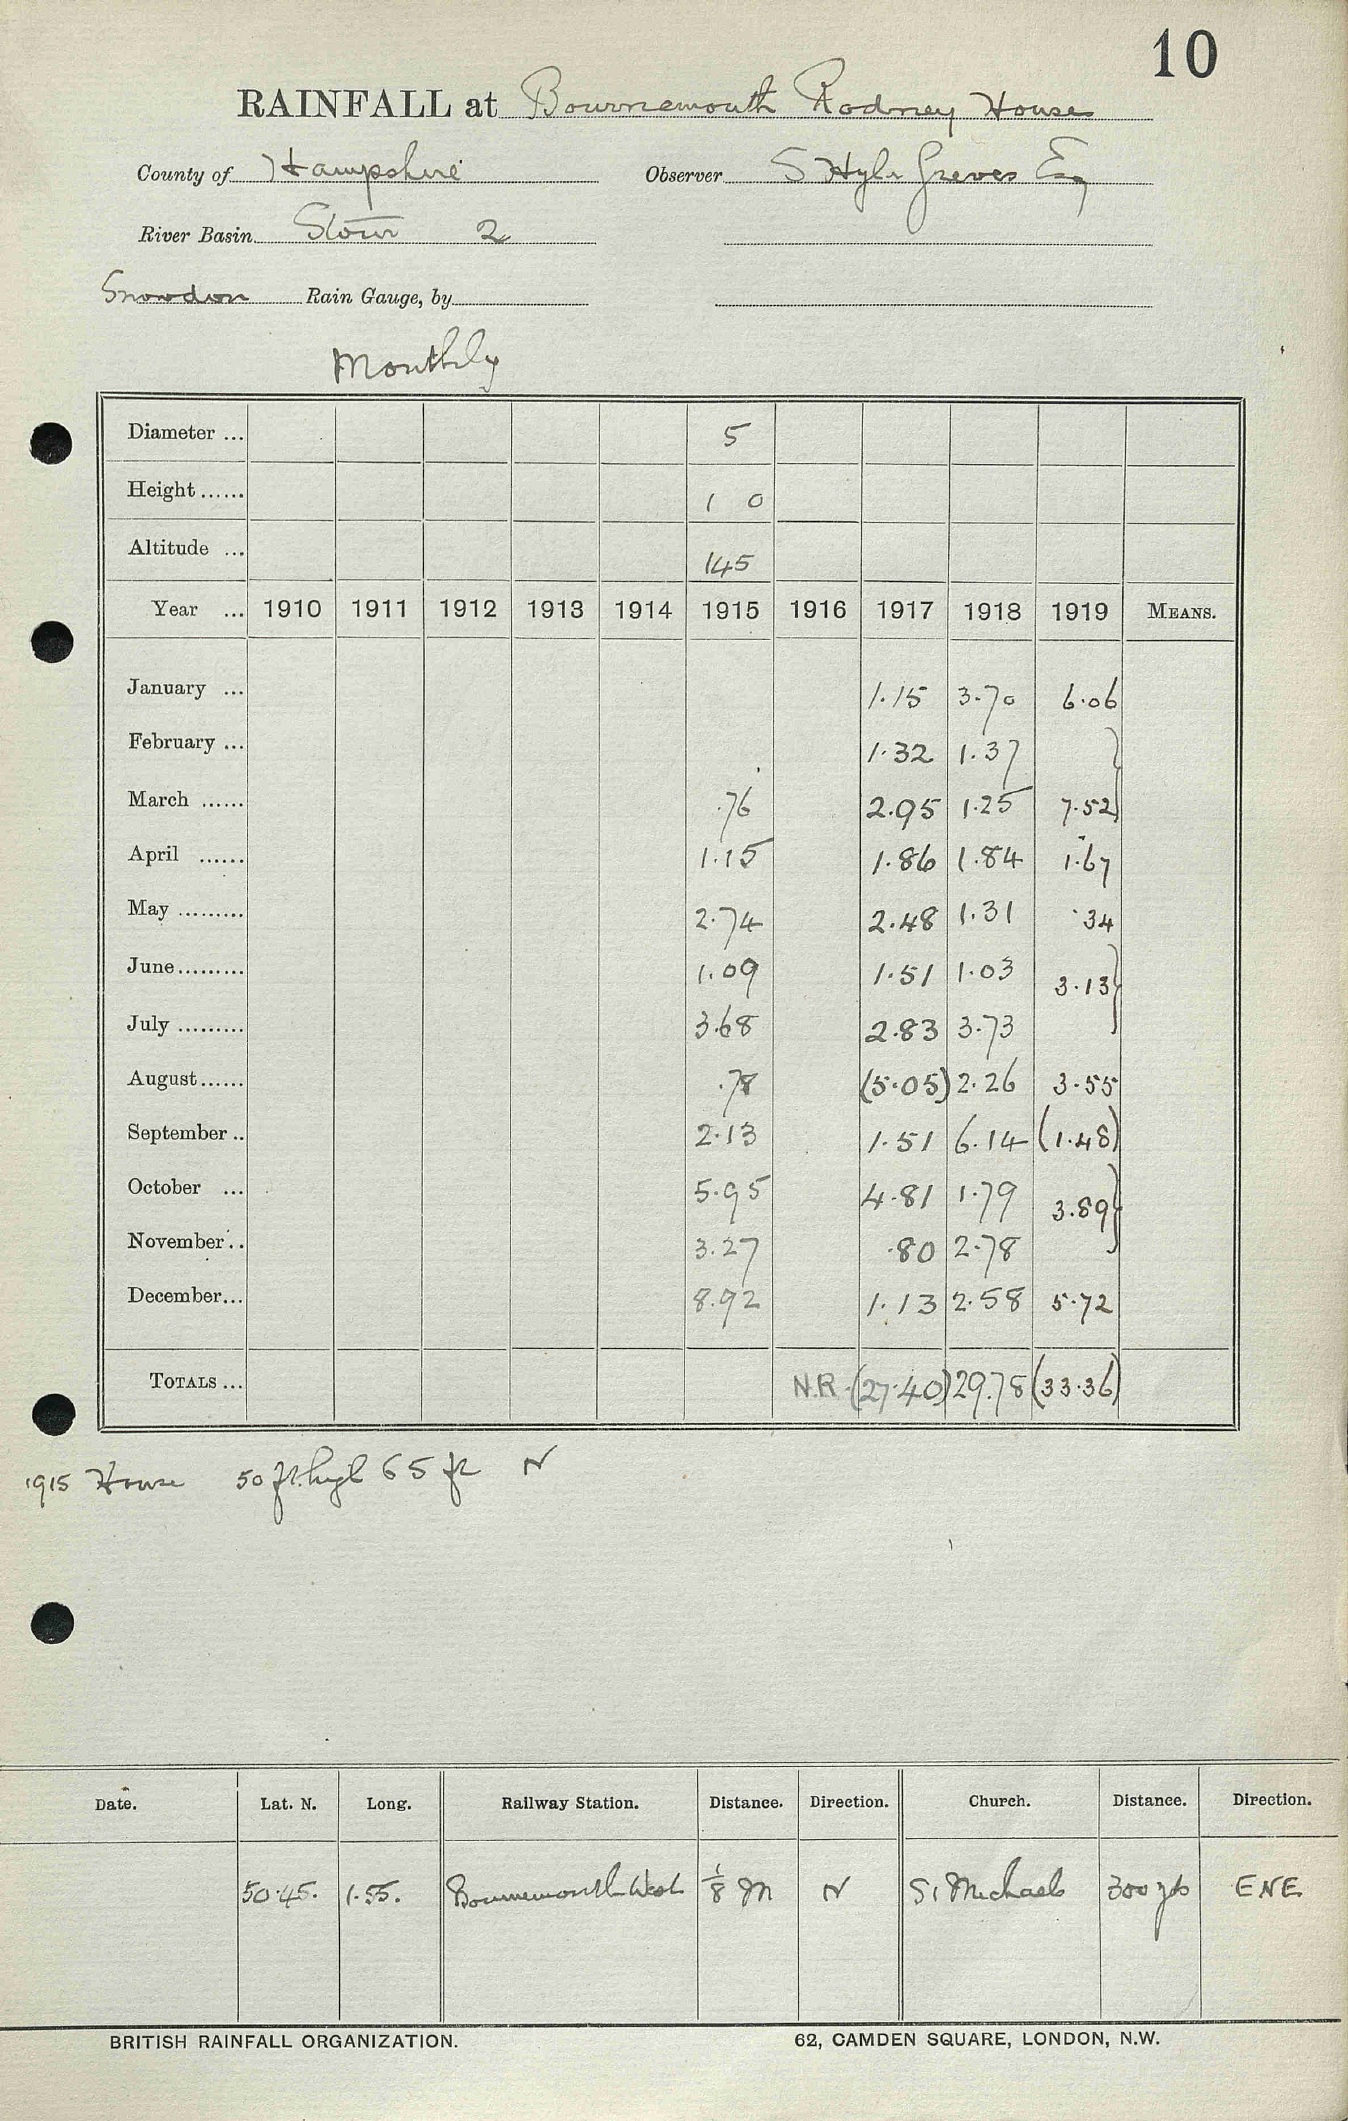 10
RAINFALL at Bournemouth Rodney House
County of Hampshire Observer S Hyla Greves Esq
River Basin Stour 2
Snowdon Rain Gauge, by
Monthly
Diameter ... 5
Height ...... 1 0
Altitude ... 145
Year ... 1910 1911 1912 1913 1914 1915 1916 1917 1918 1919 MEANS.
January ... 1.15 3.70 6.06
February ... 1.32 1.37
March ...... .76 2.95 1.25 7.52}
April ...... 1.15 1.86 1.84 1.67
May ......... 2.74 2.48 1.31 .34
June ......... 1.09 1.51 1.03 3.13}
July ......... 3.68 2.83 3.73
August ...... .78 (5.05) 2.26 3.55
September .. 2.13 1.51 6.14 (1.48)
October ... 5.95 4.81 1.79 3.89}
November .. 3.27 .80 2.78
December ... 8.92 1.13 2.58 5.72
TOTALS ... N.R. (27.40) 29.78 (33.36)
1915 House 50 ft. high 65 ft N
Date. Lat. N. Long. Railway Station. Distance. Direction. Church. Distance. Direction.
50.45. 1.55. Bournemouth West 1/8 M N St Michaels 300 yds ENE
BRITISH RAINFALL ORGANIZATION. 62, CAMDEN SQUARE, LONDON, N.W.